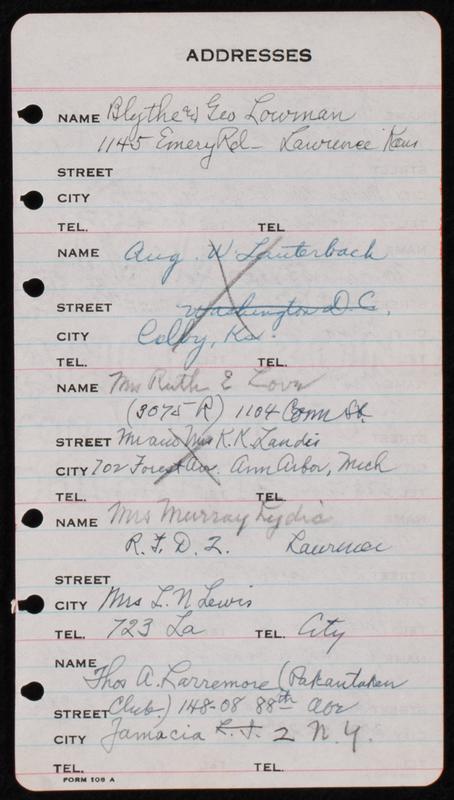 ADDRESSES
NAME Blythe & Geo Lowman
1145 Emery Rd - Lawrence Kans
STREET
CITY
TEL. TEL
NAME Aug. W. Lauterback
STREET Washington D.C.
CITY Colby, Ks.
TEL. TEL.
NAME Mrs Ruth E Love
(3075 R) 1104 Conn St.
STREET Mr and Mrs K.K. Landis
CITY 702 Forest Ave. Ann Arbor, Mich
TEL. TEL.
NAME Mrs Murray Lydia
R.F.D. 2. Lawrence
STREET
CITY Mrs L. N Lewis
TEL. 723 La TEL. City
NAME
Thos A. Larremore (Pakantaken
STREET Club) 148-08 88th Ave
CITY Jamacia L.I. 2 N.Y.
TEL. TEL.
FORM 108 A